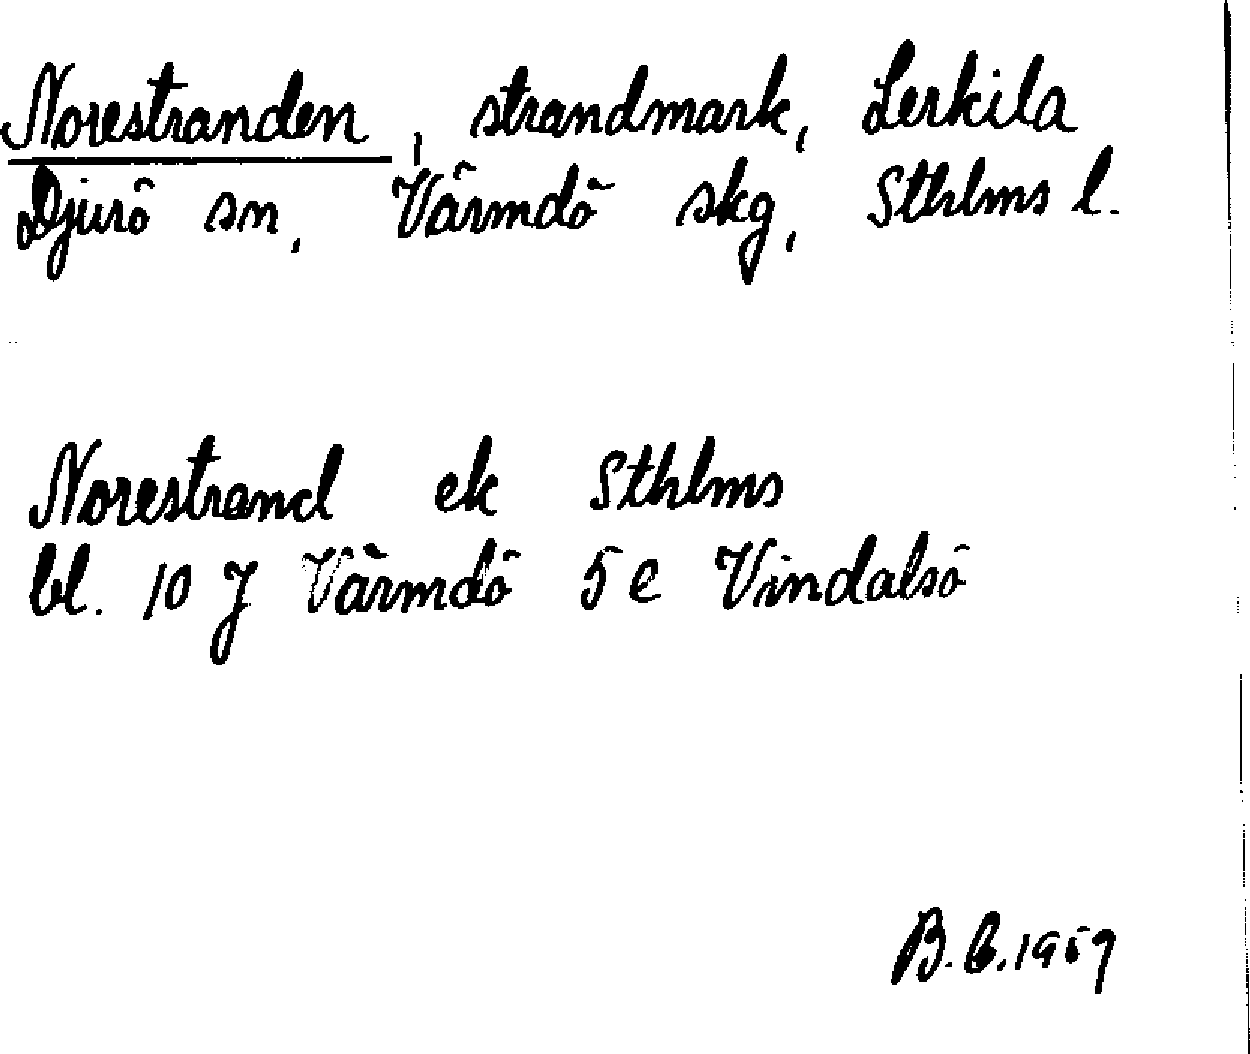 Norestranden, strandmark, Lerkila
Djurö sn, Värmdö skg, Sthlms l.
Norestrand ek Sthlms
bl. 10 J Värmdö 5 e Vindalsö
B. C. 1959